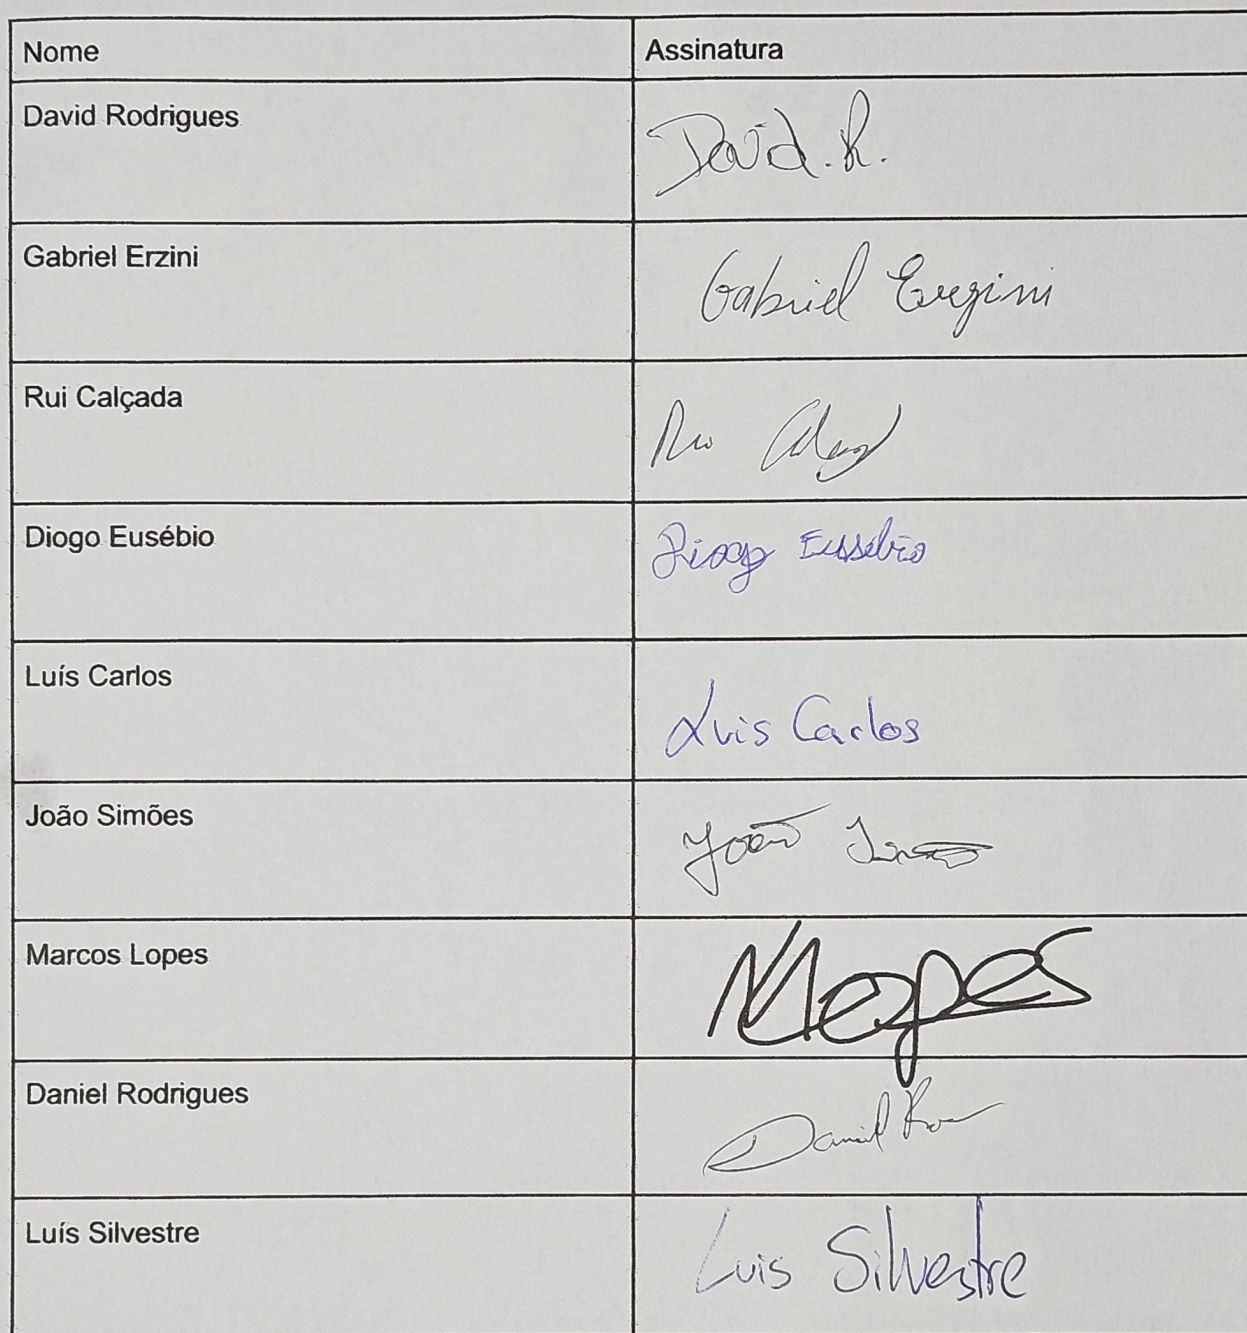 Nome Assinatura
David Rodrigues David.R.
Gabriel Erzini Gabriel Erzini
Rui Calçada Rui
Diogo Eusébio Diogo Eussébio
Luís Carlos Luis Carlos
João Simões João
Marcos Lopes
Daniel Rodrigues Daniel
Luís Silvestre Luis Silvestre